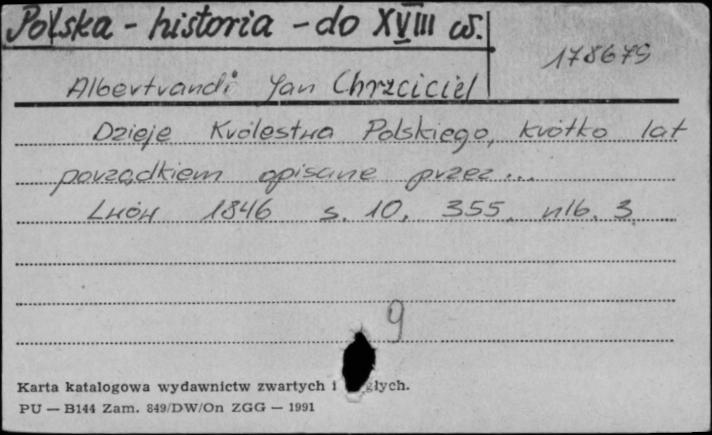 Polska - historia - do XVIII w.
178679
Albertrandi Jan Chrzciciel
Dzieje Królestwa Polskiego, krótko lat
porządkiem opisane przez...
Lwów 1846 s. 10, 355, nlb. 3
9
Karta katalogowa wydawnictw zwartych i głych.
PU — B144 Zam. 849/DW/On ZGG — 1991